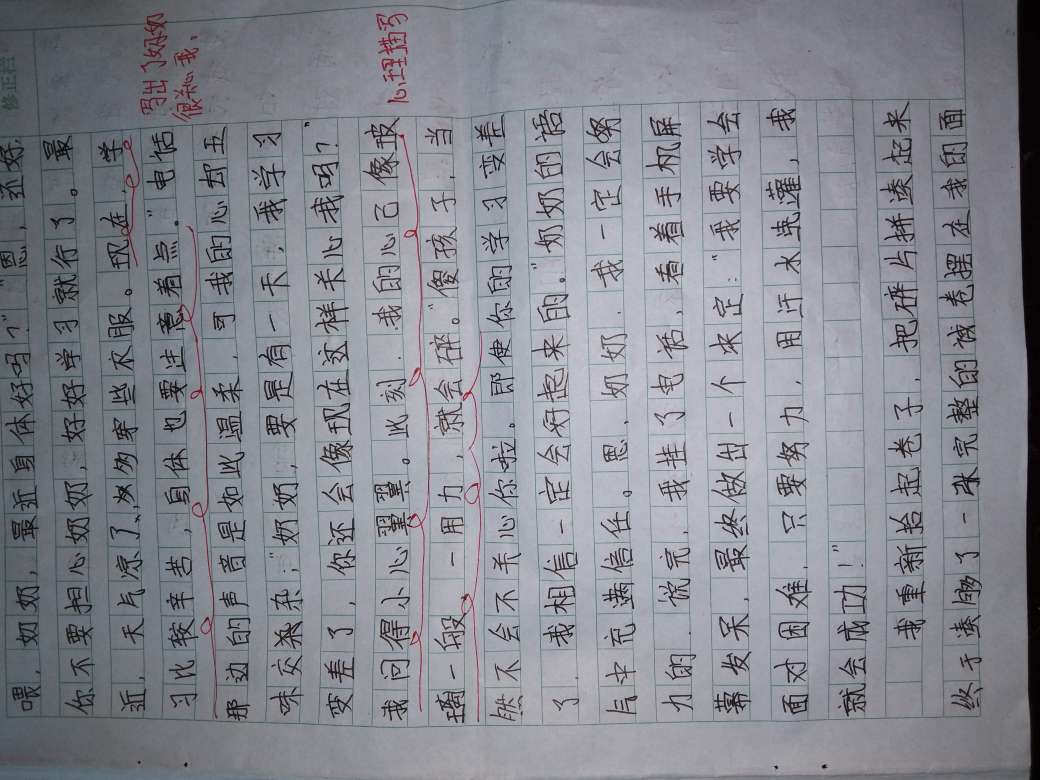 修正栏
写出了奶奶
很关心我。
心理描写
喂,奶奶,最近身体好吗?”“恩,还好.
你不要担心奶奶,好好学习就行了。最
近,天气凉了,多穿些衣服。现在,学
习比较辛苦,身体也要注意着点。”电话
那边的声音是如此温柔,可我的心却五
味交杂,“奶奶,要是有一天,我学习
变差了,你还会像现在这样关心我吗?”
我问得小心翼翼。此刻.我的心已像玻
璃一般,一用力,就会碎。“傻孩子,当
然不会不关心你啦。即使你的学习变差
了.我相信一定会好起来的。”奶奶的语
气中充满信任。恩,奶奶.我一定会努
力的.说完,我挂了电话,看着手机屏
幕发呆,最终做出一个决定:“我要学会
面对困难,只要努力,用汗水浇灌,我
就会成功!”
我重新拾起卷子,把碎片拼凑起来
终于凑够了一张完整的试卷摆在我的面